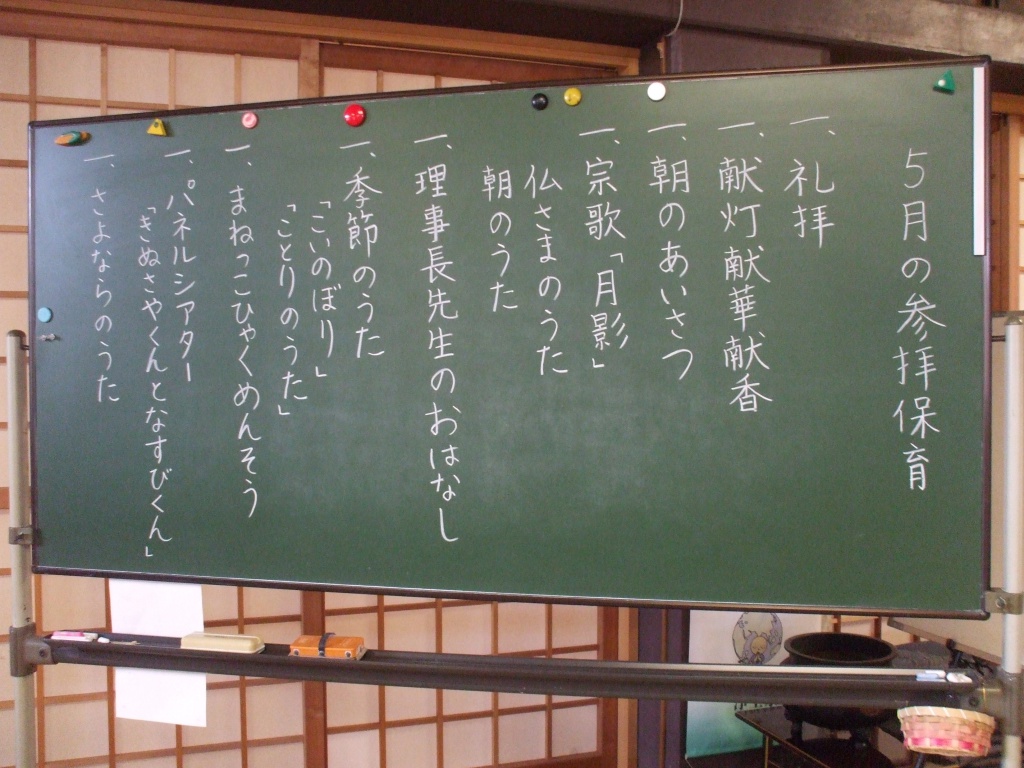 5月の参拝保育
一、礼拝
一、献灯献華献香
一、朝のあいさつ
一、宗歌「月影」
仏さまのうた
朝のうた
一、理事長先生のおはなし
一、季節のうた
「こいのぼり」
「ことりのうた」
一、まねっこひゃくめんそう
一、パネルシアター
「きぬさやくんとなすびくん」
一、さよならのうた